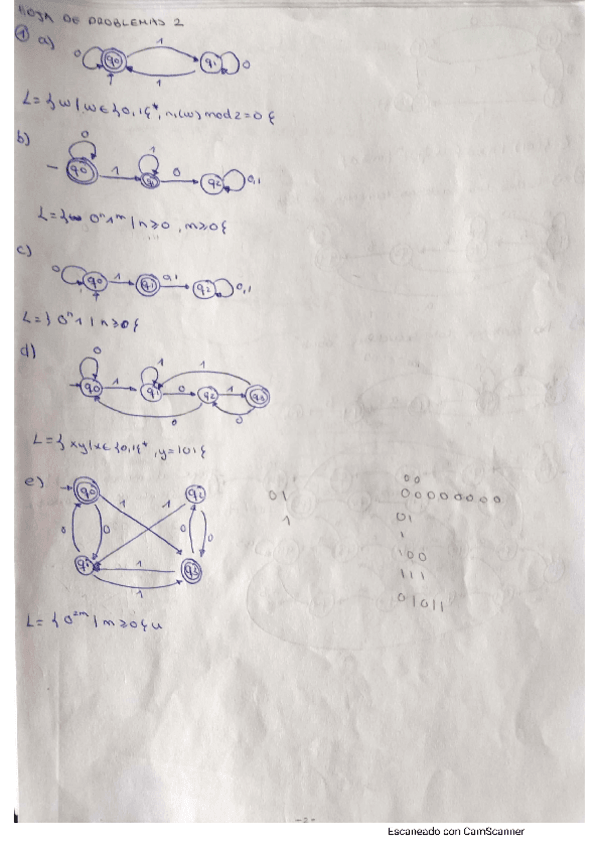 HOJA DE PROBLEMAS 2
① a)
0 q0 1 q1 0
1
L = { w | w ∈ {0,1}*, n₁(w) mod 2 = 0 }
b)
0 1
q0 1 q1 0 q2 0,1
L = { 0ⁿ1ᵐ | n≥0, m≥0 }
c)
0 q0 1 q1 0,1 q2 0,1
L = { 0ⁿ1 | n≥0 }
d)
0 1 1
q0 1 q1 0 q2 1 q3
0 0
L = { xy | x ∈ {0,1}*, y = 101 }
e)
q0 1 1 q2
0 0 0 0
q1 1 q3
1
L = { 0²ᵐ | m≥0 } u
01
1
00
00000000
01
1
100
111
01011
-2-
Escaneado con CamScanner